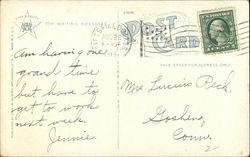 FOR WRITING MESSAGES
POST
CARD
THIS SPACE FOR ADDRESS ONLY
Am having one
grand time
but have to
get to work
next week.
Jennie.
Mrs. Lucius Peck.
Goshen,
Conn.
2